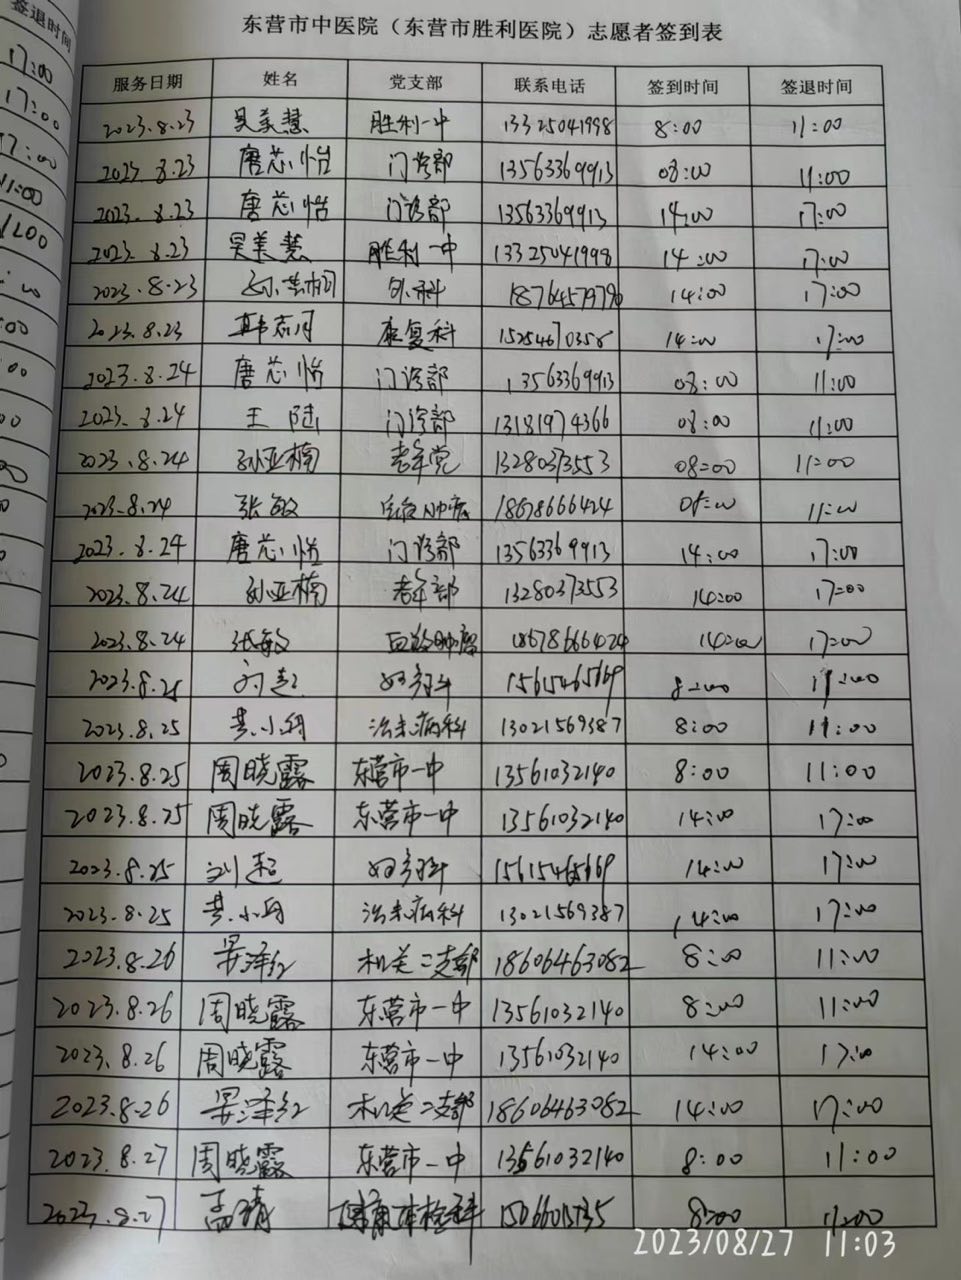 签退时间
17:00
17:00
17:00
11:00
东营市中医院（东营市胜利医院）志愿者签到表
服务日期 姓名 党支部 联系电话 签到时间 签退时间
2023.8.23 吴美慧 胜利一中 13325041998 8:00 11:00
2023.8.23 唐芯怡 门诊部 13563369913 08:00 11:00
2023.8.23 唐芯怡 门诊部 13563369913 14:00 17:00
2023.8.23 吴美慧 胜利一中 13325041998 14:00 17:00
2023.8.23 外科 14:00 17:00
2023.8.23 康复科 14:00 17:00
2023.8.24 唐芯怡 门诊部 13563369913 08:00 11:00
2023.8.24 王陆 门诊部 13181974366 08:00 11:00
2023.8.24 孙亚楠 13280373553 08:00 11:00
2023.8.24 张敏 08:00 11:00
2023.8.24 唐芯怡 门诊部 13563369913 14:00 17:00
2023.8.24 孙亚楠 13280373553 14:00 17:00
2023.8.24 张敏 14:00 17:00
2023.8.25 刘超 15615465169 8:00 11:00
2023.8.25 治未病科 13021569387 8:00 11:00
2023.8.25 周晓露 东营市一中 13561032140 8:00 11:00
2023.8.25 周晓露 东营市一中 13561032140 14:00 17:00
2023.8.25 刘超 15615465169 14:00 17:00
2023.8.25 治未病科 13021569387 14:00 17:00
2023.8.26 晏泽红 机关二支部 18606463082 8:00 11:00
2023.8.26 周晓露 东营市一中 13561032140 8:00 11:00
2023.8.26 周晓露 东营市一中 13561032140 14:00 17:00
2023.8.26 晏泽红 机关二支部 18606463082 14:00 17:00
2023.8.27 周晓露 东营市一中 13561032140 8:00 11:00
2023.8.27 孟婧 健康体检科 8:00 11:00
2023/08/27 11:03